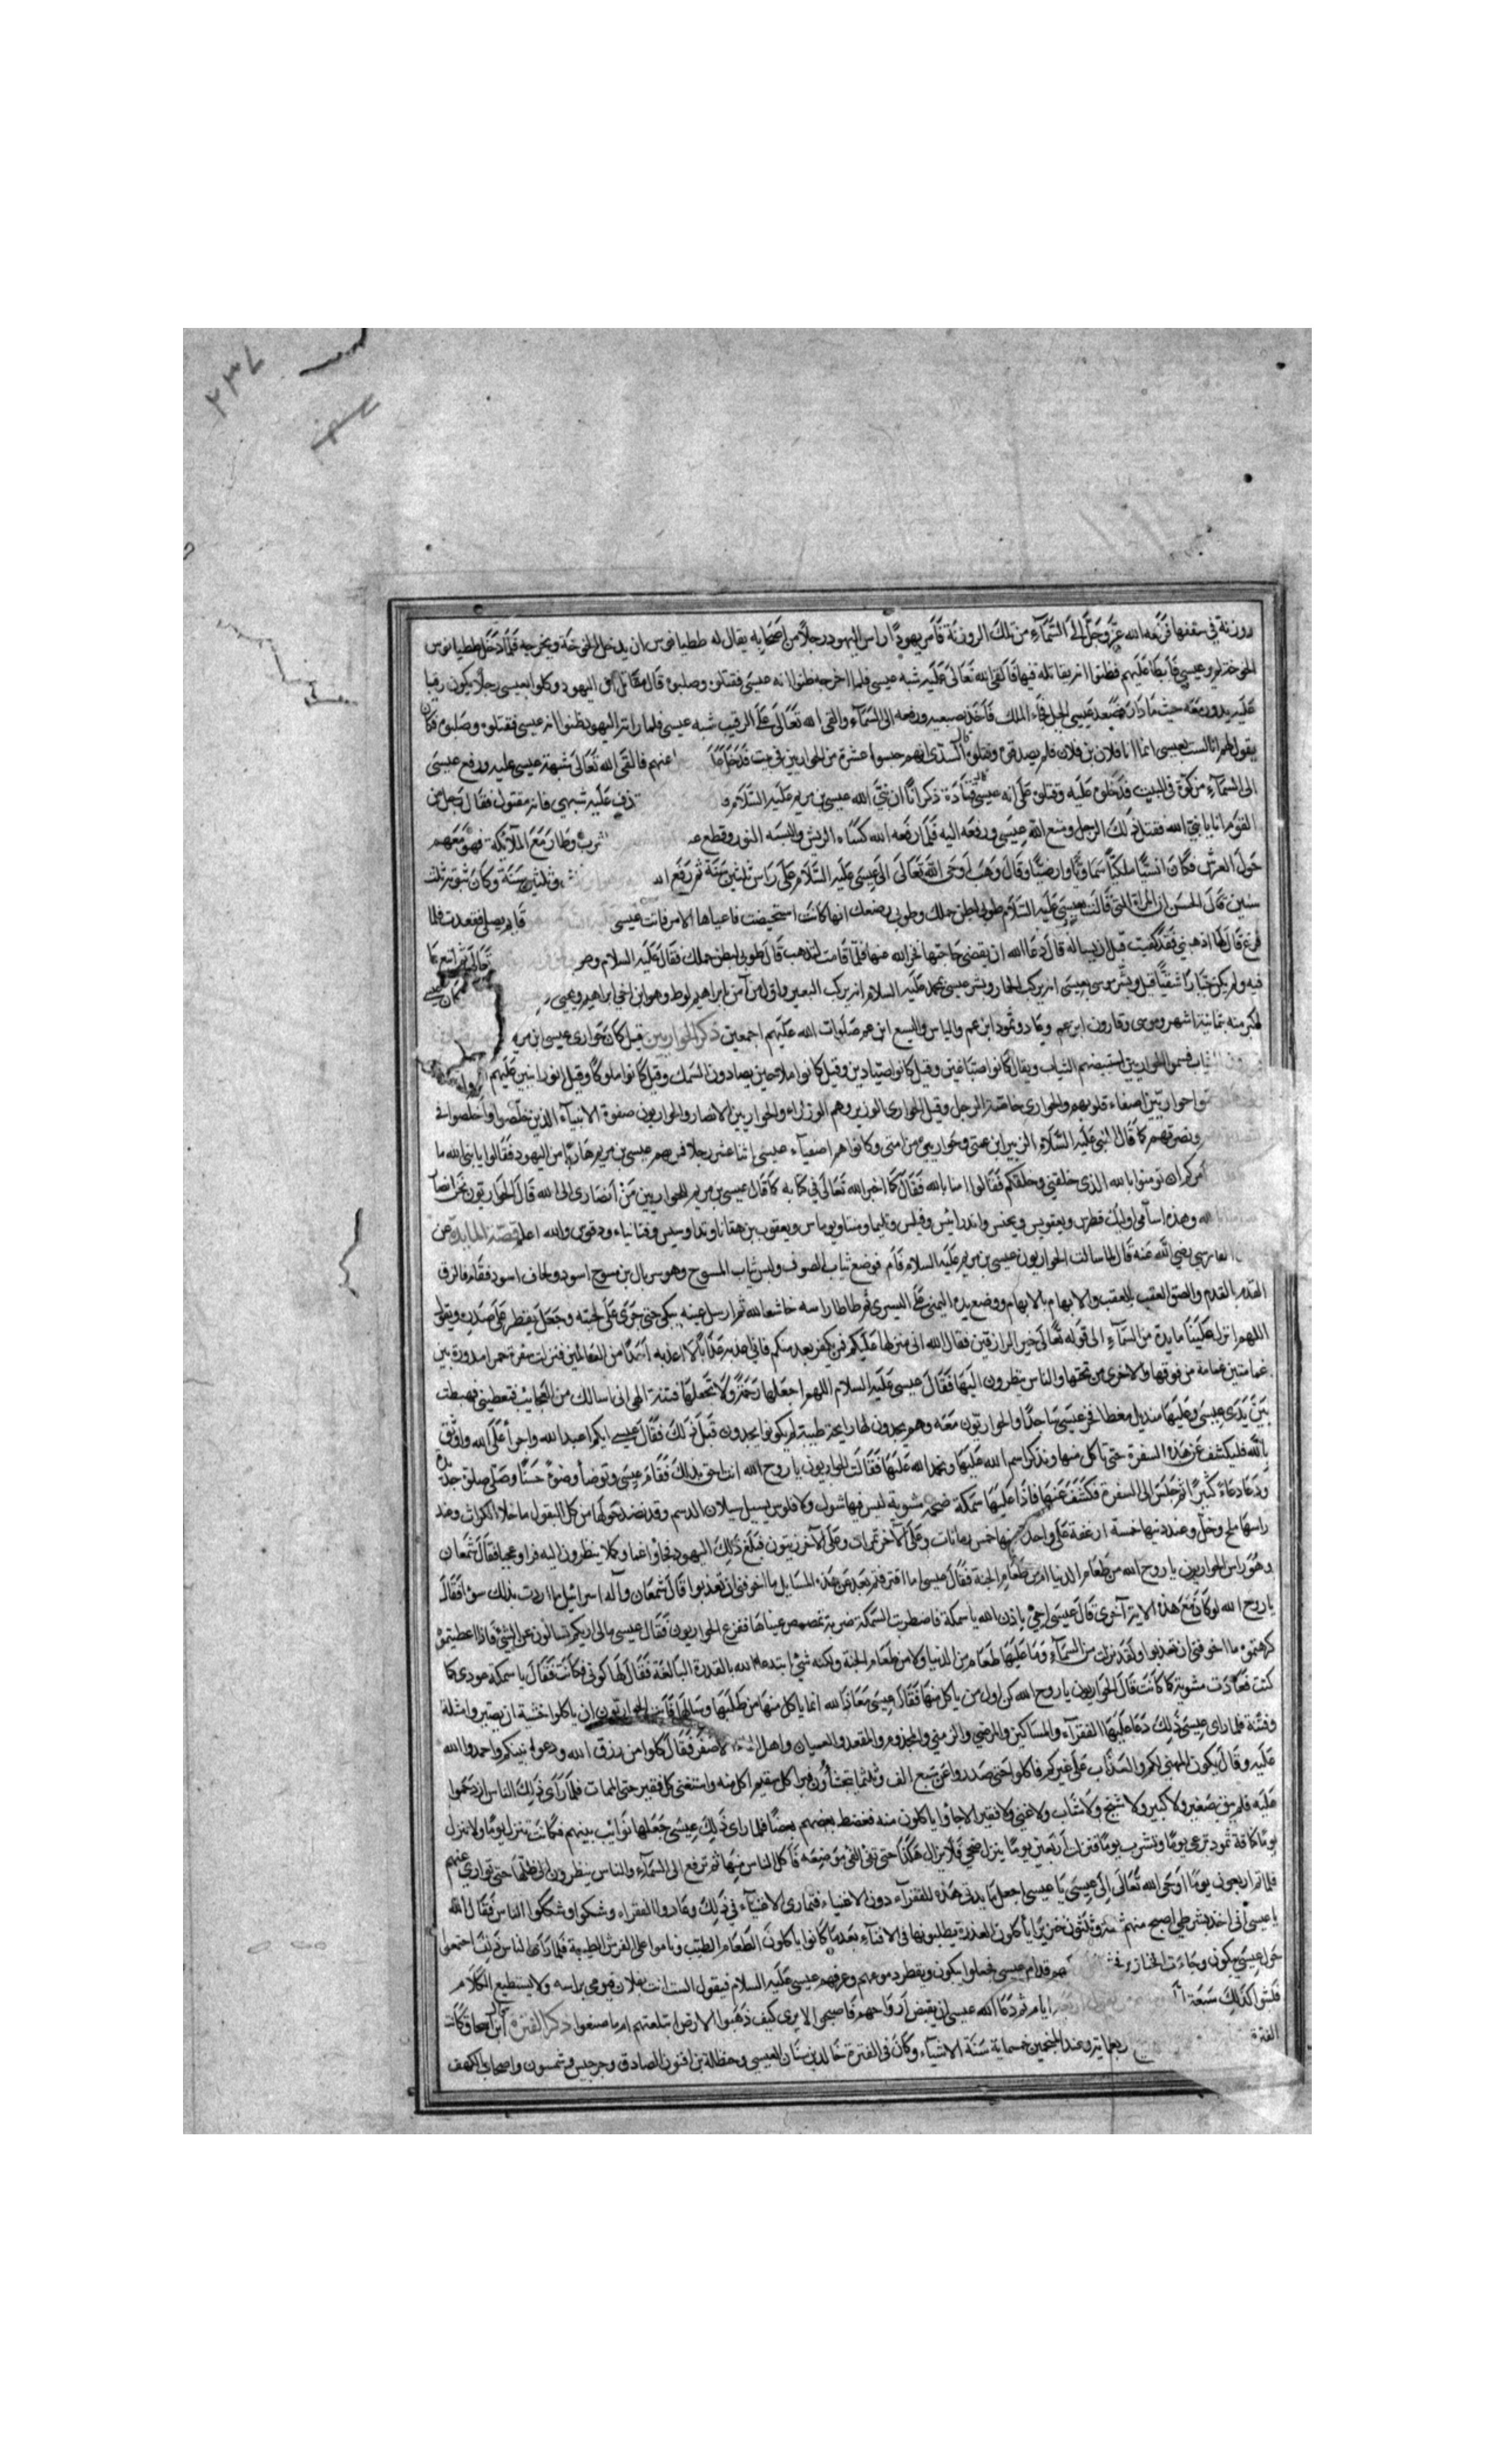 ٢٣٧
روزنة في سقفها فرفعه الله عز وجل الى السمآء من تلك الروزنة فامر يهودا راس اليهود رجلا من اصحابه يقال له ططيانوس ان يدخل الخوخة ويخرجه فلما دخل ططيانوس
الخوخة لم ير عيسى فابطا عليهم فظنوا انه يقاتله فيها فالقى الله تعالى عليه شبه عيسى فلما اخرجه ظنوا انه عيسى فقتلوه وصلبوه قال مقاتل ان اليهود وكلوا بعيسى رجلا يكون رقيبا
عليه يدور معه حيث ما دار فصعد عيسى الجبل فجاء الملك فاخذ بضبعيه ورفعه الى السمآء والقى الله تعالى على الرقيب شبه عيسى فلما راته اليهود ظنوا انه عيسى فقتلوه وصلبوه فكان
يقول لهم انا لست بعيسى انما انا فلان بن فلان فلم يصدقوه وقتلوه السدى انهم حبسوا عشرة من الحواريين في بيت فدخل عنهم فالقى الله تعالى شبهة عيسى عليه ورفع عيسى
الى السمآء من كوة في البيت فدخلوا عليه وقتلوه على انه عيسى قتادة ذكر لنا ان نبي الله عيسى بن مريم عليه السلام يقذف عليه شبهي فانه مقتول فقال رجل من
القوم انا يا نبي الله فقتل ذلك الرجل ومنع الله عيسى ورفعه اليه فلما رفعه الله كساه الريش والبسه النور وقطع وطار مع الملائكة فهو معهم
حول العرش فكان انسيا ملكيا سماويا وارضيا وقال وهب اوحى الله تعالى الى عيسى عليه السلام على راس ثلثين سنة ثم رفع وثلثين سنة وكان نبوته ثلث
سنين عن الحسن ان المراة التي قالت لعيسى عليه السلام طوبى لبطن حملك وطوبى رضعك انها كانت استحيضت فاعياها الامر فاتت عيسى قايم يصلي فقعدت فلما
فرغ قال لها اذهبي فقد كفيت قبل ان يساله قال دعا الله ان يقضي حاجتها فخر الله عنها فلما قامت لتذهب قال طوبى لبطن حملك فقال عليه السلام
فيه ولم يكن جبارا شقيا قيل وبشر موسى بعيسى انه يركب الحمار وبشر عيسى بمحمد عليه السلام انه يركب البعير واول من آمن بابراهيم لوط وهو ابن اخي ابراهيم ويحيى
اكبر منه بثمانية اشهر وموسى وقارون ابن عم وعاد وثمود ابن عم والياس واليسع ابن عم صلوات الله عليهم اجمعين ذكر الحواريين قيل كان حوارى عيسى ابن مريم
فسموا الحواريين لتبييضهم الثياب ويقال كانوا صباغين وقيل كانوا صيادين وقيل كانوا ملاحين يصادون السمك وقيل كانوا ملوكا وقيل انوار ابنين عليهم
حواريين اصفاء قلوبهم والحوارى خاصة الرجل وقيل الحوارى الوزير وهم الوزراء والحواريين الانصار والحواريون صفوة الانبيآء الذين خلصوا واخلصوا في
ونصرتهم كما قال النبي عليه السلام الزبير ابن عمتي وحواريي من امتي وكانوا هم اصفيآء عيسى اثنا عشر رجلا فمر بهم عيسى بن مريم هاربا من اليهود فقالوا يا نبي الله ما
امركم ان تومنوا بالله الذي خلقني وخلقكم فقالوا امنا بالله فقال كما اخبر الله تعالى في كتابه كما قال عيسى بن مريم للحواريين من انصارى الى الله قال الحواريون نحن انصار
الله وهذه اسامي اوليك فطرس ويعقوبس ويحنس واندرائيس وفيلس ويعقوب بن وقنانياء والله اعلم قصة المايدة عن
الفارسي رضي الله عنه قال لما سالت الحواريون عيسى بن مريم عليه السلام قام فوضع ثياب الصوف ولبس ثياب المسوح وهو سربال من مسوح اسود ولحاف اسود فقام فالزق
القدم بالقدم والصق العقب بالعقب والابهام بالابهام ووضع يده اليمنى على اليسرى ثم طاطا راسه خاشعا لله ثم ارسل عينيه يبكي حتى جرى على لحيته وجعل يقطر على صدره ويقول
اللهم انزل علينا مايدة من السمآء الى قوله تعالى خير الرازقين فقال الله اني منزلها عليكم فمن يكفر بعد منكم فاني اعذبه عذابا لا اعذبه احدا من العالمين فنزلت سفرة حمرا مدورة بين
غمامتين غمامة من فوقها والاخرى من تحتها والناس ينظرون اليها فقال عيسى عليه السلام اللهم اجعلها رحمة ولا تجعلها فتنة الهى اني اسالك من العجايب فتعطيني فهبطت
بين يدى عيسى وعليها منديل مغطا فخر عيسى ساجدا والحواريون معه وهم يجدون لها رايحة طيبة لم يكونوا يجدون قبل ذلك فقال عيسى ايكم اعبد الله واجرا على الله واوثق
بالله فليكشف عن هذه السفرة حتى ناكل منها ونذكر اسم الله عليها ونحمد الله عليها فقالت الحواريون يا روح الله انت احق بذلك فقام عيسى وتوضا وضوء حسنا وصلى صلوة جديدة
ودعا دعاء كثيرا ثم جلس الى السفرة فكشف عنها فاذا عليها سمكة ضخمه مشوية ليس فيها شوك ولا فلوس يسيل سيلان الدسم وقد نضد حولها من كل البقول ما خلا الكراث وعند
راسها ملح وخل وعند ذنبها خمسة ارغفة على واحد منها خمس رمانات وعلى الآخر تمرات وعلى الآخر زيتون فبلغ ذلك اليهود فجاؤا غما وكمدا ينظرون اليه فراوا عجبا فقال شمعان
وهو راس الحواريين يا روح الله من طعام الدنيا ام من طعام الجنة فقال عيسى اما افترقتم بعد عن هذه المسايل ما اخوفني ان تعذبوا قال شمعان واله اسرائيل ما اردت بذلك سوء فقال
يا روح الله لو كان مع هذه الاية آخرى قال عيسى احيى باذن الله يا سمكة فاضطربت السمكة ضربة تبصبص عيناها ففزع الحواريون فقال عيسى ما لي اريكم تسالون عن الشئ فاذا اعطيتموه
كرهتموه ما اخوفني ان تعذبوا ولقد نزلت من السمآء وما عليها طعام من الدنيا ولا من طعام الجنة ولكنه شئ ابتدعه الله بالقدرة البالغة فقال لها كوني فكانت فقال يا سمكة عودى كما
كنت فعادت مشوية كما كانت قال الحواريون يا روح الله كن اول من ياكل منها فقال عيسى معاذ الله انما ياكل منها من طلبها وسالها فابت الحواريون ان ياكلوا خشية ان يصير وامثلة
وفتنة فلما راى عيسى ذلك دعا عليها الفقرآء والمساكين والمرضى والزمني والمجذوم والمقعد والعميان واهل الاصفر فقال كلوا من رزق الله ودعوة نبيكم واحمدوا الله
عليه وقال يكون المهنى لكم والعذاب على غيركم فاكلوا حتى صدروا عن سبع الف وثلثما يتجشاؤن فبرا كل سقيم اكل منه واستغنى كل فقير حتى الممات فلما راى ذلك الناس ازدحموا
عليه فلم يبق صغير ولا كبير ولا شيخ ولا شاب ولا غني ولا فقير الا جاؤا ياكلون منه فضغط بعضهم بعضا فلما راى ذلك عيسى جعلها نوايب بينهم فكانت تنزل يوما ولا تنزل
يوما كناقة ثمود ترعى يوما وتشرب يوما فنزلت اربعين يوما ينزل ضحى فلا يزال هكذا حتى يفئ الفئ موضعه فاكل الناس منها ثم ترفع الى السمآء والناس ينظرون الى ظلها حتى توارى عنهم
فلما تم اربعون يوما اوحى الله تعالى الى عيسى يا عيسى اجعل مايدتي هذه للفقرآء دون الاغنياء فتمارى الاغنيآء في ذلك وعادوا الفقراء وشكوا وشككوا الناس فقال الله
يا عيسى اني اخذ بشرطي اصبح منهم وثلثون خنزيرا ياكلون العذرة يطلبونها في الافنآء بعد ما كانوا ياكلون الطعام الطيب ويناموا على الفرش الطيبة فلما راى الناس ذلك اجتمعوا
حول عيسى يبكون وجاءت الخنازير قدام عيسى فجعلوا يبكون ويقطر دموعهم وعرفهم عيسى عليه السلام فيقول الست انت بفلان فيومى براسه ولا يستطيع الكلام
فلبثوا كذلك سبعة ايام ثم دعا الله عيسى ان يقبض ارواحهم فاصبحوا لا يرى كيف ذهبوا الارض ابتلعتهم ام ما صنعوا ذكر الفترة ابن اسحاق كانت
الفترة ربعماية وعند المنجمين خمسماية سنة الا شياء وكان في الفترة خالد بن سنان العبسي وحنظلة بن افنون الصادق وجرجيس وشمسون واصحاب الكهف